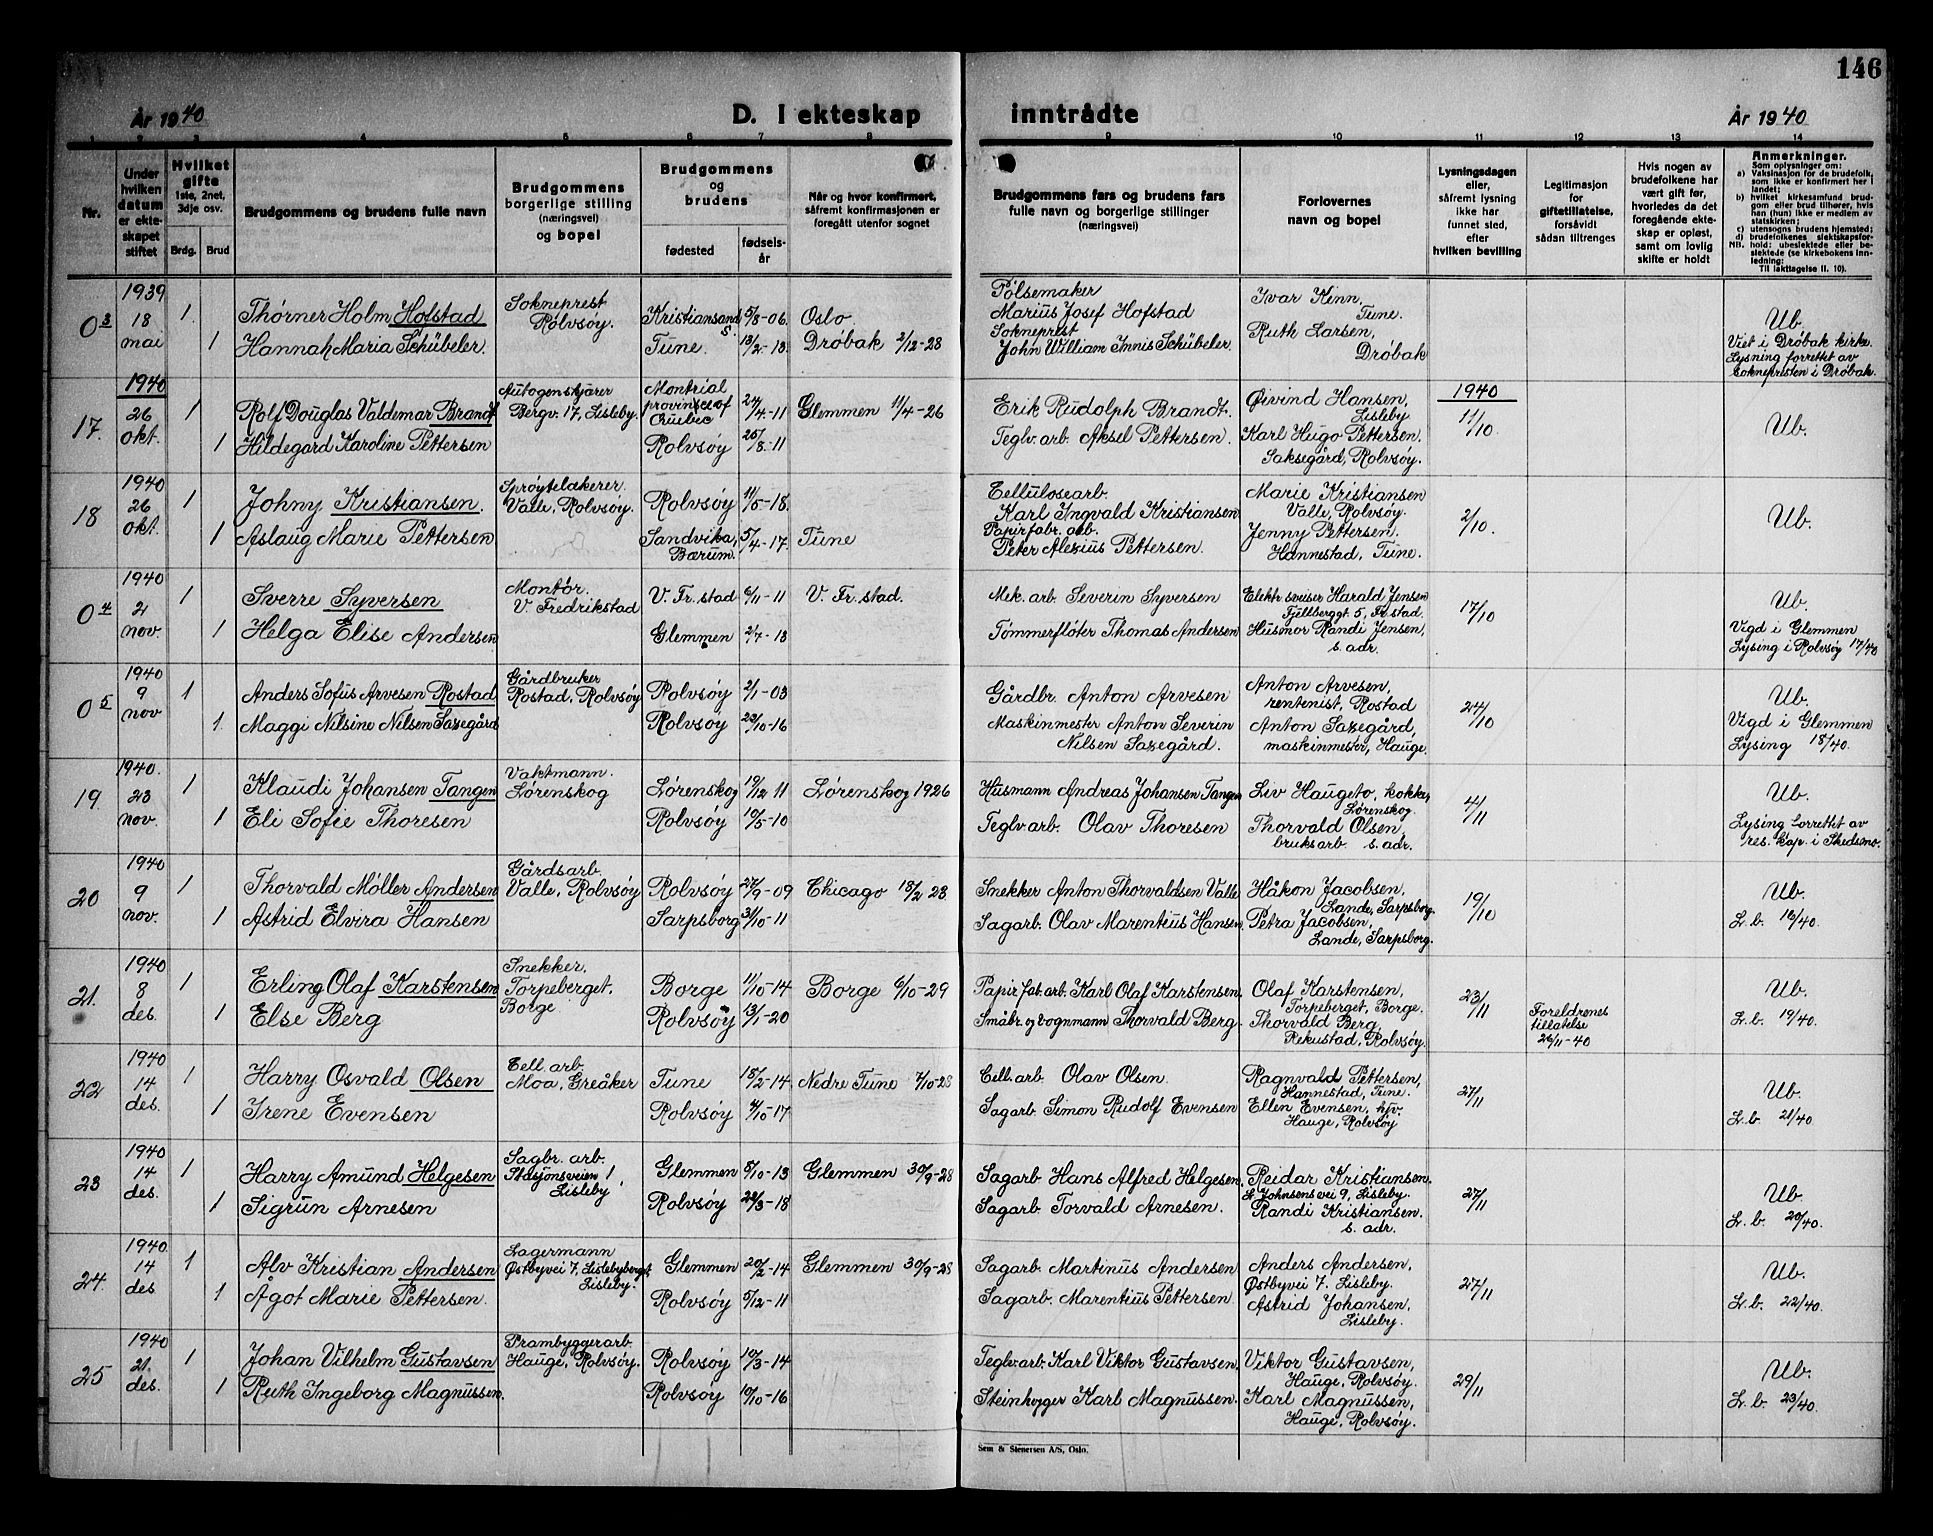 146
År 1940
D. I ekteskap inntrådte
År 1940
1 2 3 4 5 6 7 8 9 10 11 12 13 14
Nr.
Under hvilken datum er ekteskapet stiftet
Hvilket gifte 1ste, 2net, 3dje osv.
Brdg. Brud
Brudgommens og brudens fulle navn
Brudgommens borgerlige stilling (næringsvei) og bopel
Brudgommens og brudens
fødested fødsels-år
Når og hvor konfirmert, såfremt konfirmasjonen er foregått utenfor sognet
Brudgommens fars og brudens fars fulle navn og borgerlige stillinger (næringsvei)
Forlovernes navn og bopel
Lysningsdagen eller, såfremt lysning ikke har funnet sted, efter hvilken bevilling
Legitimasjon for giftetillatelse, forsåvidt sådan tiltrenges
Hvis nogen av brudefolkene har vært gift før, hvorledes da det foregående ekteskap er opløst, samt om lovlig skifte er holdt
Anmerkninger.
Som oplysninger om:
a) Vaksinasjon for de brudefolk, som ikke er konfirmert her i landet;
b) hvilket kirkesamfund brudgom eller brud tilhører, hvis han (hun) ikke er medlem av statskirken;
c) utensogns brudens hjemsted;
d) brudefolkenes slektskapsforhold: ubeslektede eller beslektede (se kirkebokens innledning:
NB.
Til iakttagelse II. 10).
0 3 1939 18 mai 1 Thørner Holm Hofstad Sokneprest Rolvsøy. Kristiansand S. 5/8-06. Oslo Pølsemaker Marius Josef Hofstad Ivar Kinn, Tune. Ub.
1 Hannah Maria Schübeler. Tune. 13/2-13. Drøbak 2/12-28 Sokneprest John William Innis Schübeler. Ruth Larsen, Drøbak Viet i Drøbak kirke. Lysning forrettet av soknepresten i Drøbak.
17. 1940 26 okt. 1 Rolf Douglas Valdemar Brandt Autogenskjærer Bergv. 17, Lisleby. Montrial province of Quibec 24/4-11 Glemmen 11/4-26 Erik Rudolph Brandt. Øivind Hansen, Lisleby 1940 11/10 Ub.
1 Hildegard Karoline Pettersen Rolvsøy 25/8-11 Teglv. arb. Aksel Pettersen. Karl Hugo Pettersen. Saksegård, Rolvsøy.
18 1940 26 okt. 1 Johny Kristiansen. Sprøytelækerer. Valle, Rolvsøy. Rolvsøy 11/5-18. Cellulosearb. Karl Ingvald Kristiansen Marie Kristiansen Valle, Rolvsøy. 2/10. Ub.
1 Aslaug Marie Pettersen Sandvika, Bærum. 5/4-17. Tune Papirfabr. arb. Peter Alexius Pettersen. Jenny Pettersen. Hannestad, Tune.
0 4 1940 2 nov. 1 Sverre Syversen Montør. V. Fredrikstad V. Fr. stad 6/11-11 V. Fr. stad. Mek. arb. Severin Syversen Elektr. sveiser Harald Jensen Fjellberggt. 5, Fr. stad. 17/10 Ub.
1 Helga Elise Andersen Glemmen 2/4-13 Tømmerfløter Thomas Andersen Husmor Randi Jensen, s. adr. Vigd i Glemmen Lysing i Rolvsøy 17/40
0 5 1940 9 nov 1 Anders Sofus Arvesen Rostad Gårdbruker Rostad, Rolvsøy Rolvsøy 2/1-03 Gårdbr. Anton Arvesen Anton Arvesen, rentenist, Rostad 24/10 Ub.
1. Maggi Nilsine Nilsen Saxegård Rolvsøy 23/10-16 Maskinmester Anton Severin Nilsen Saxegård. Anton Saxegård, maskinmester, Hauge. Vigd i Glemmen Lysing 18/40.
19. 1940. 23 nov. 1 Klaudi Johansen Tangen Vaktmann. Lørenskog Lørenskog 19/12 11 Lørenskog 1926 Husmann Andreas Johansen Tangen Liv Haugeto, kokke, Lørenskog. 4/11 Ub.
1 Eli Sofie Thoresen Rolvsøy 10/5-10 Teglv. arb. Olav Thoresen Thorvald Olsen, bruksarb. s. adr. Lysing forrettet av res. kap. i Skedsmo.
20 1940 9 nov. 1 Thorvald Møller Andersen Gårdsarb. Valle, Rolvsøy Rolvsøy 27/9-09 Chicago 18/2-23. Snekker Anton Thorvaldsen Valle Håkon Jacobsen, Lande, Sarpsborg. 19/10 Ub.
1 Astrid Elvira Hansen Sarpsborg 31/10-11 Sagarb. Olav Marentius Hansen. Petra Jacobsen, Lande, Sarpsborg. L. b. 16/40.
21. 1940 8 des. 1 Erling Olaf Karstensen Snekker. Torpeberget. Borge Borge 11/10-14 Borge 6/10-29 Papir fab. arb. Karl Olaf Karstensen. Olaf Karstensen, Torpeberget, Borge. 23/11 Ub.
1 Else Berg Rolvsøy 13/1-20 Småbr. og vognmann Thorvald Berg. Thorvald Berg, Rekustad, Rolvsøy. Foreldrenes tillatelse 26/11-40 L. b. 19/40.
22 1940 14 des. 1 Harry Osvald Olsen Cell. arb. Moa, Greåker Tune 18/2-14. Nedre Tune 7/10-28 Cell. arb. Olav Olsen. Ragnvald Pettersen, Hannestad, Tune. 27/11 Ub.
1 Irene Evensen Rolvsøy 4/10-17 Sagarb. Simon Rudolf Evensen Ellen Evensen, hjv. Hauge, Rolvsøy L. b. 21/40.
23 1940 14 des. 1 Harry Amund Helgesen Sagbr. arb. Stasjonsveien 1, Lisleby Glemmen 5/10-13 Glemmen 30/9-28 Sagarb. Hans Alfred Helgesen. Reidar Kristiansen. L. Johnsens vei 9, Lisleby. 27/11 Ub.
1 Sigrun Arnesen Rolvsøy 22/3-18 Sagarb. Torvald Arnesen. Randi Kristiansen. s. adr. L. b. 20/40.
24. 1940. 14 des. 1 Alv Kristian Andersen Lagermann Østbyvei 7. Lislebyberget, Lisleby. Glemmen 20/2-14 Glemmen 30/9-28 Sagarb. Martinus Andersen Anders Andersen, Østbyvei 7. Lisleby. 27/11 Ub.
1 Ågot Marie Pettersen. Rolvsøy 5/12-11 Sagarb. Marentius Pettersen. Astrid Johansen, Lisleby. L. b. 22/40.
25 1940 21. des. 1 Johan Vilhelm Gustavsen Prambyggerarb. Hauge, Rolvsøy. Rolvsøy 10/3-14 Teglv. arb. Karl Viktor Gustavsen. Viktor Gustavsen, Hauge, Rolvsøy. 29/11 Ub.
1 Ruth Ingeborg Magnussen. Rolvsøy 10/10-16 Steinhogger Karl Magnussen. Karl Magnussen, Hauge, Rolvsøy. L. b. 23/40.
Sem & Stenersen A/S, Oslo.